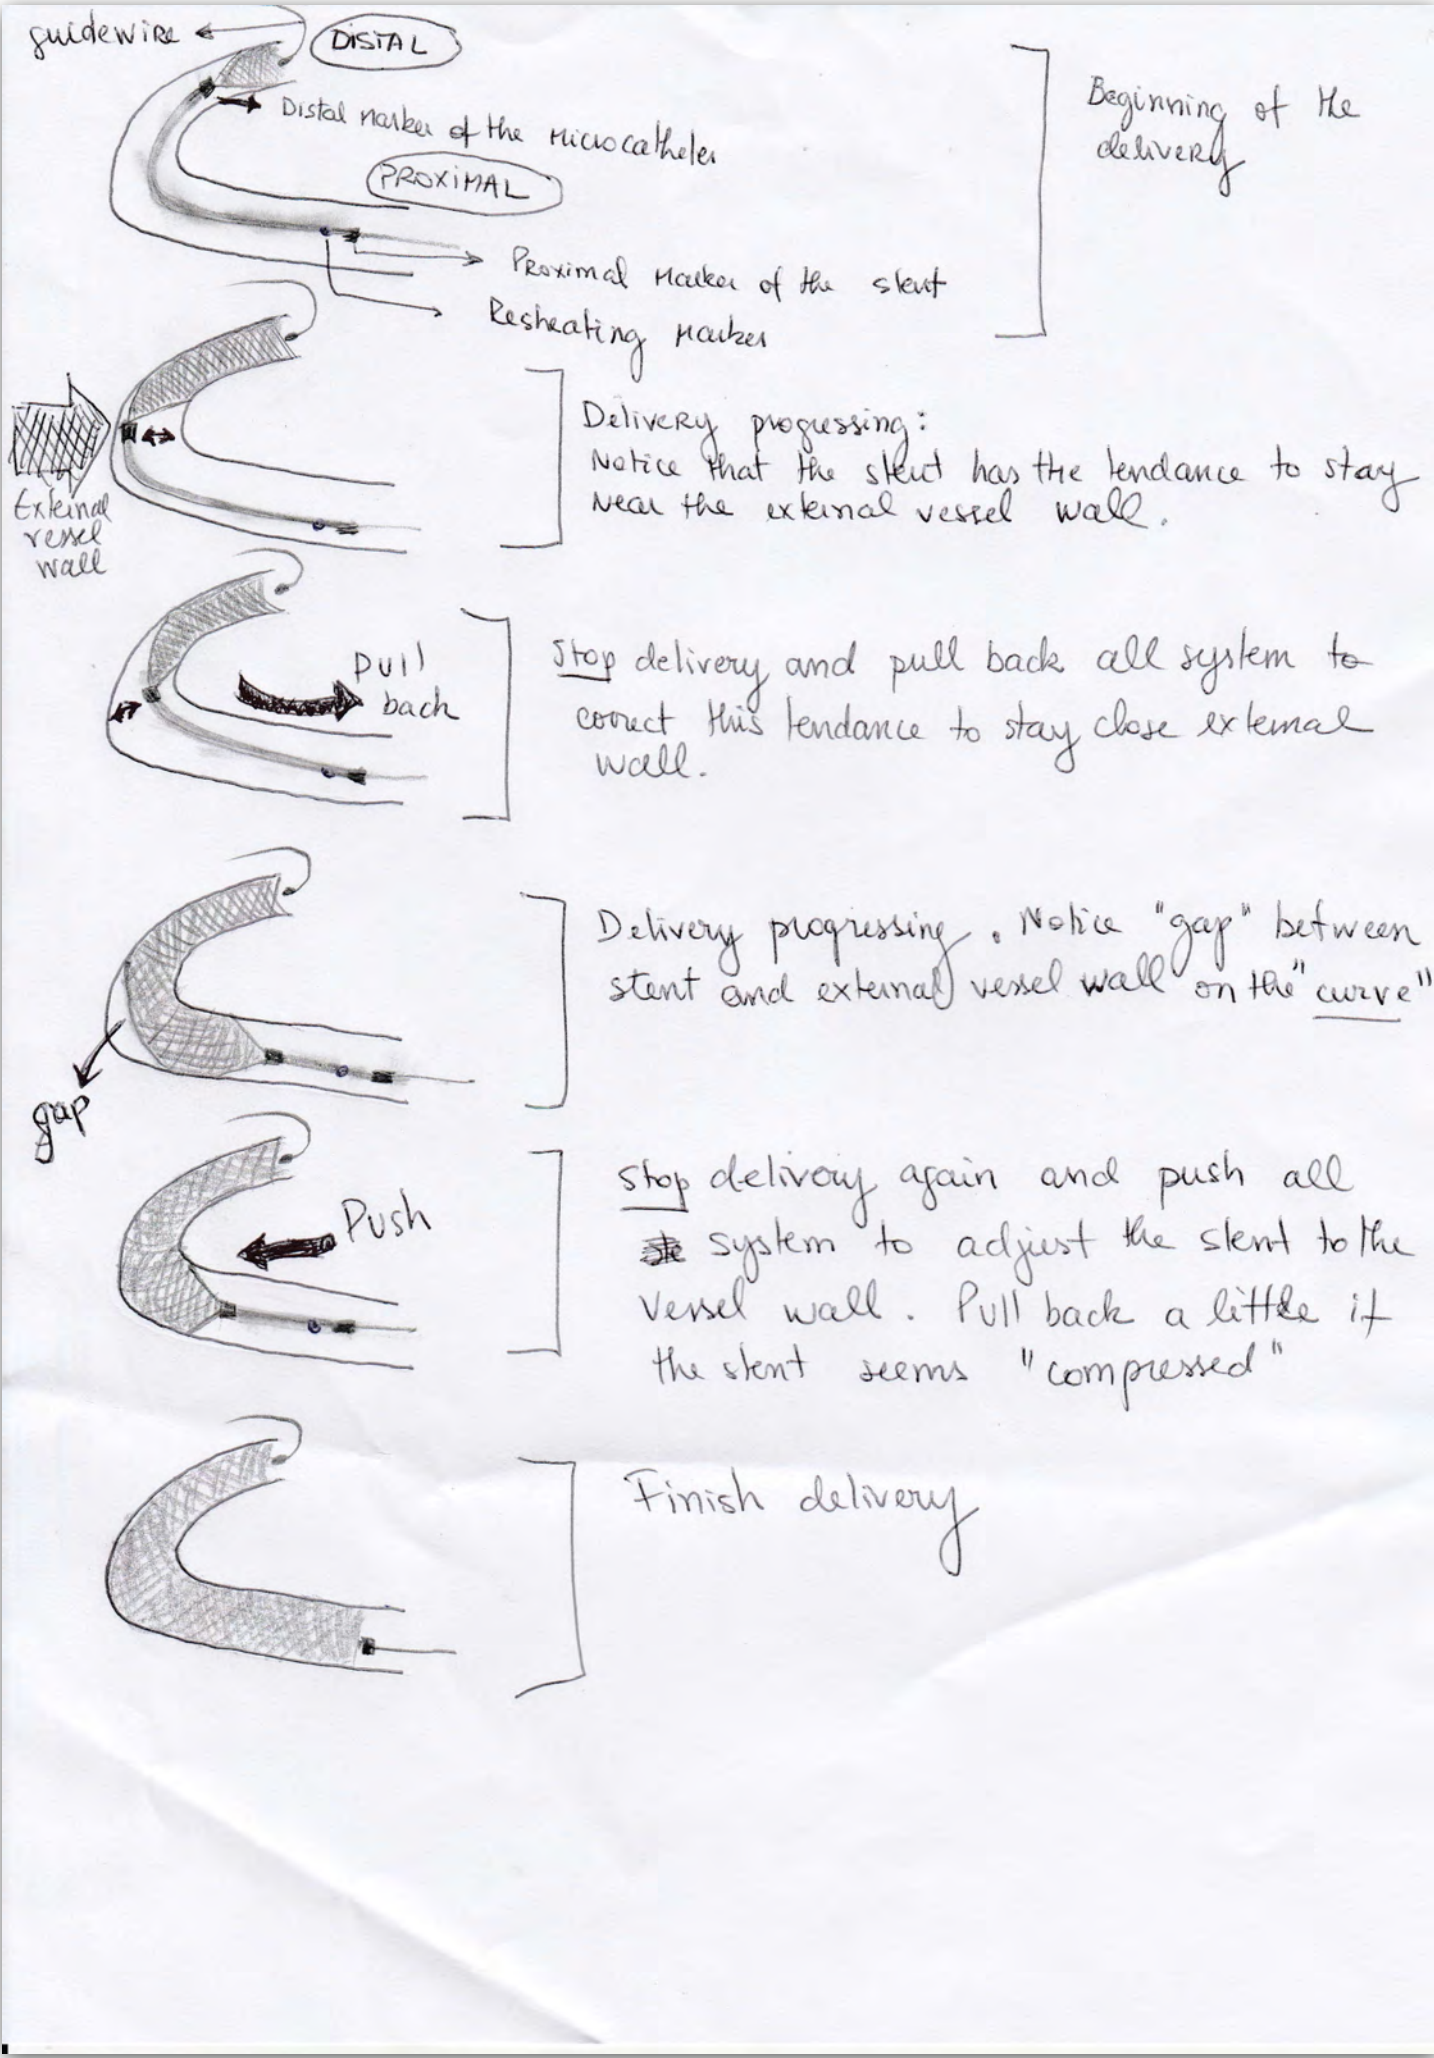 guidewire
DISTAL
Distal marker of the microcatheter
PROXIMAL
Proximal marker of the stent
Resheating marker
Beginning of the
delivery
External
vessel
wall
Delivery progressing:
Notice that the stent has the tendance to stay
near the external vessel wall.
Pull
back
Stop delivery and pull back all system to
correct this tendance to stay close external
wall.
gap
Delivery progressing. Notice "gap" between
stent and external vessel wall on the "curve"
Push
Stop delivery again and push all
system to adjust the stent to the
vessel wall. Pull back a little if
the stent seems "compressed"
Finish delivery